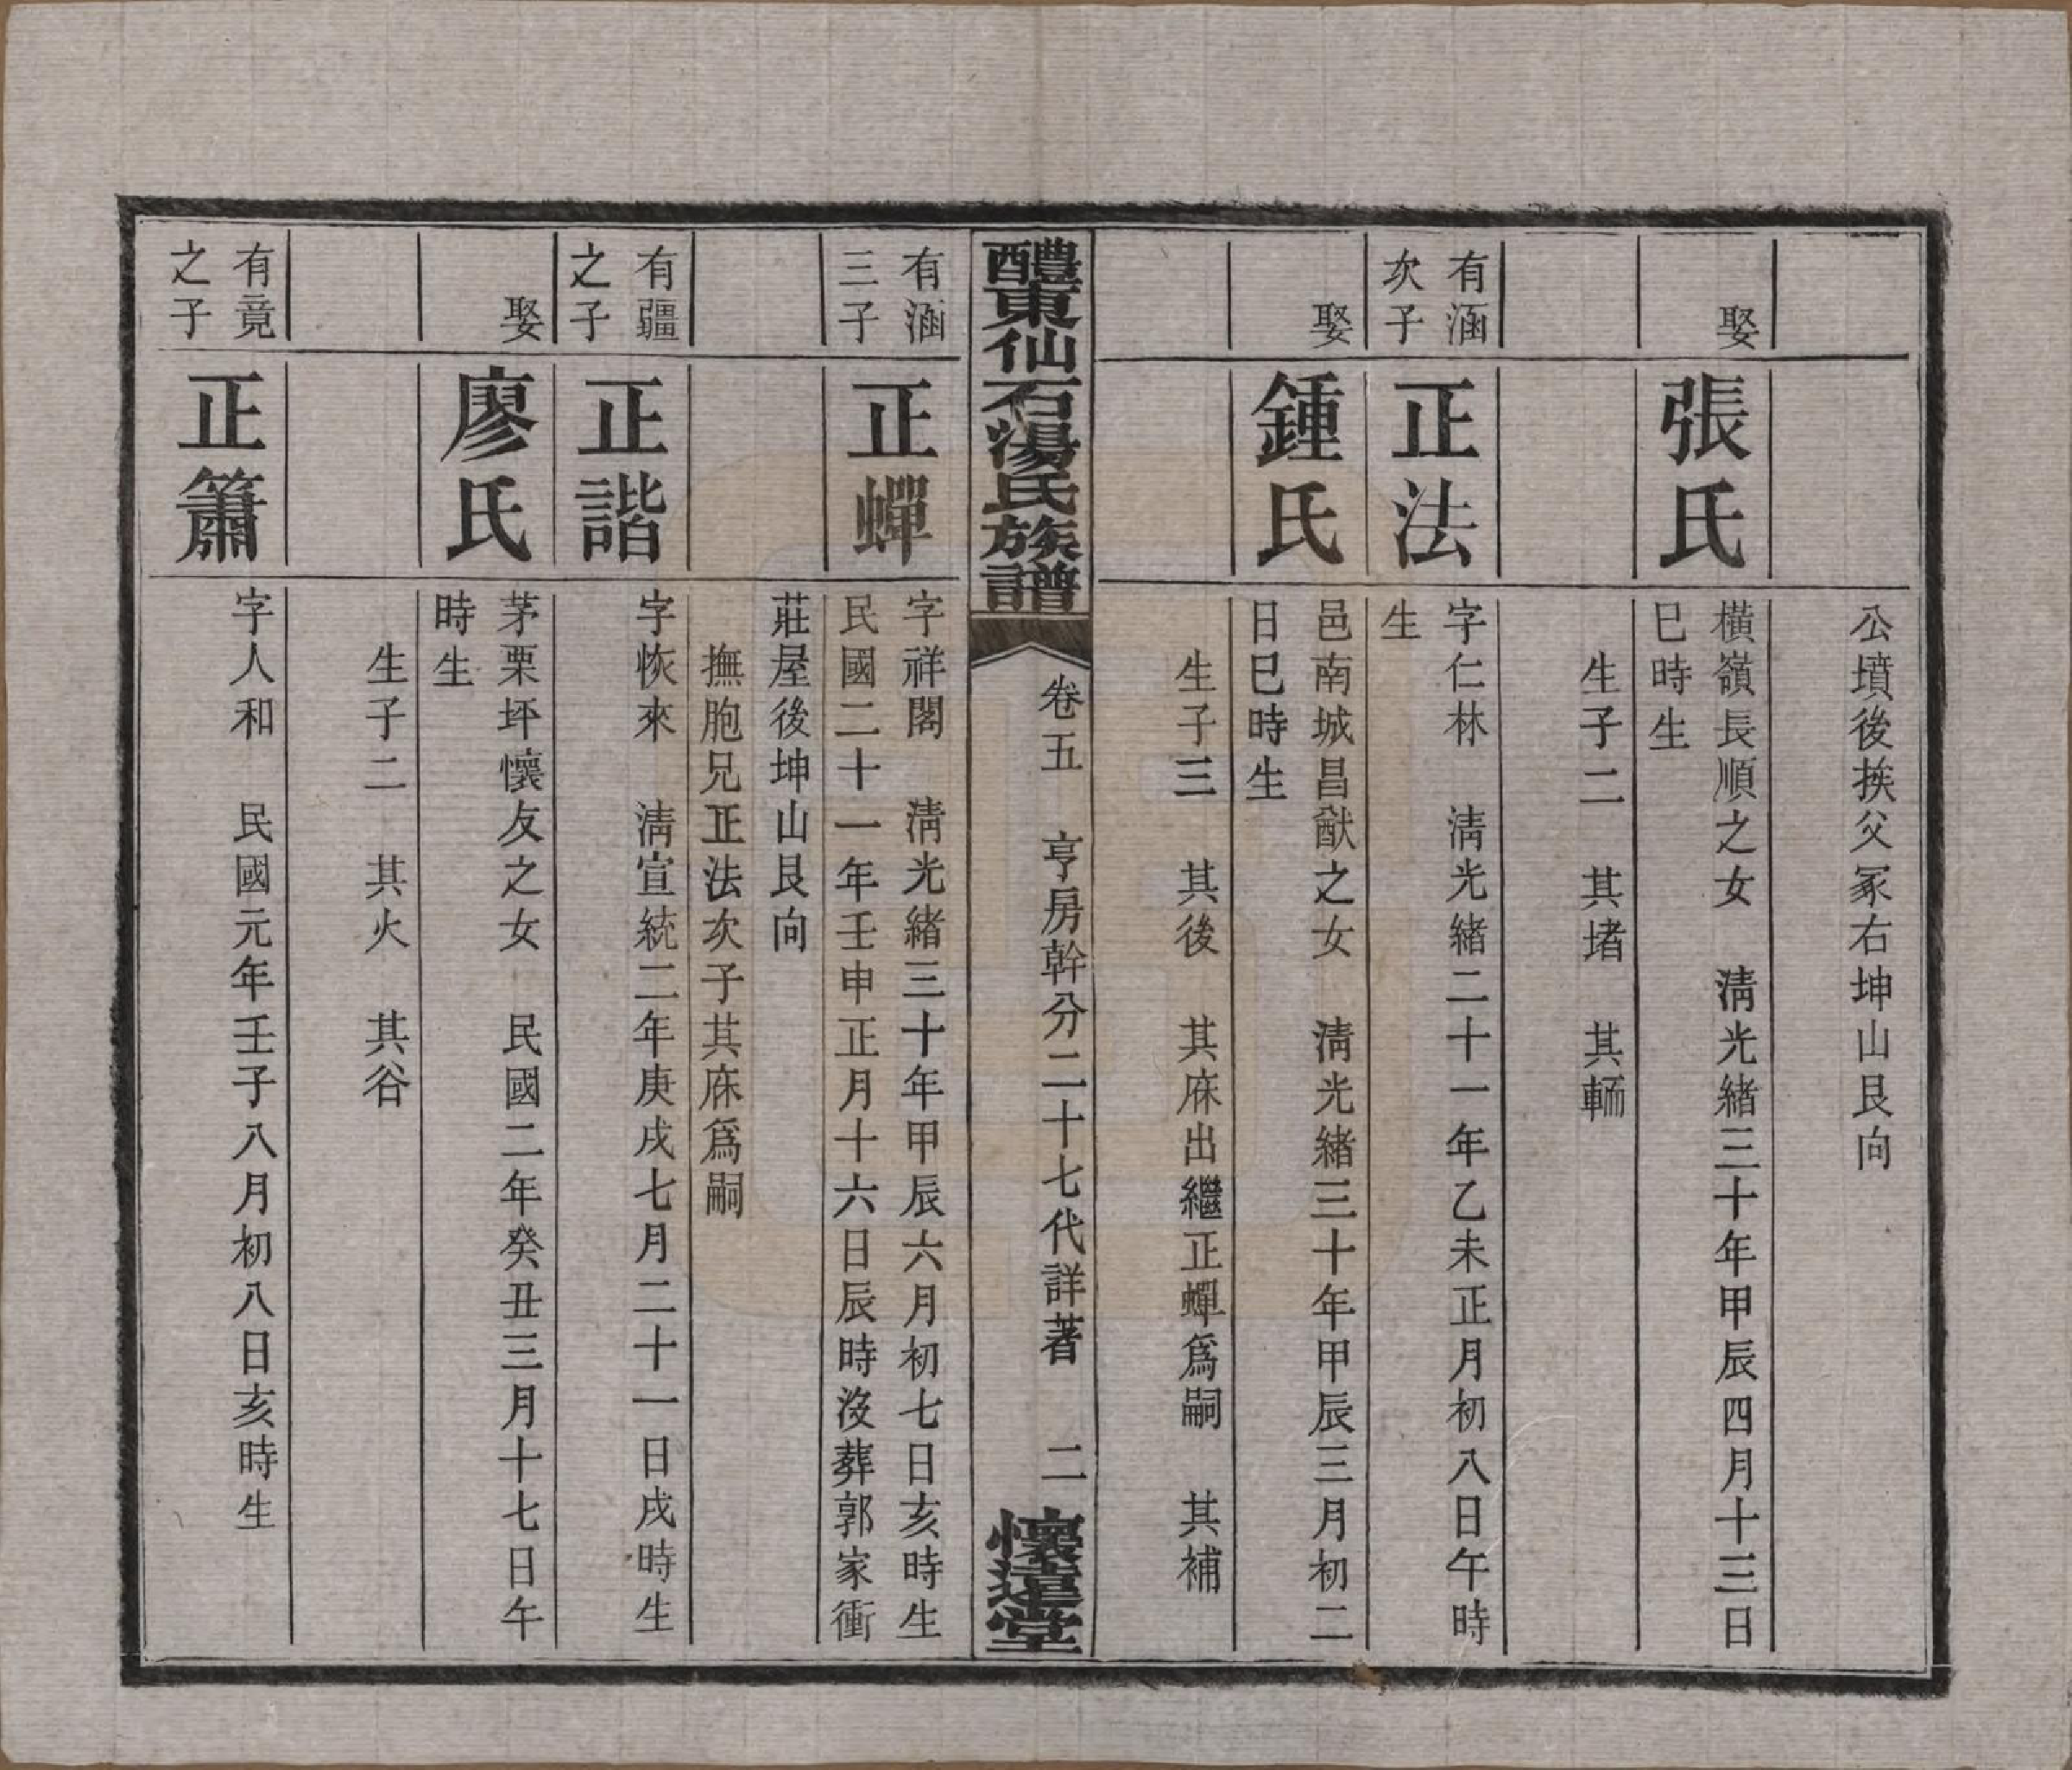 公墳後挨父冢右坤山艮向
娶
張氏
橫嶺長順之女　淸光緒三十年甲辰四月十三日
巳時生
生子二　其堵　其輀
有涵
次子
正法
字仁林　淸光緒二十一年乙未正月初八日午時
生
娶
鍾氏
邑南城昌猷之女　淸光緒三十年甲辰三月初二
日巳時生
生子三　其後　其庥出繼正蟬爲嗣　其補
醴東仙石湯氏族譜
卷五　亨房幹分二十七代詳著　二
懷遠堂
有涵
三子
正蟬
字祥閣　淸光緒三十年甲辰六月初七日亥時生
民國二十一年壬申正月十六日辰時沒葬郭家衝
莊屋後坤山艮向
撫胞兄正法次子其庥爲嗣
有疆
之子
正諧
字恢來　淸宣統二年庚戌七月二十一日戌時生
娶
廖氏
茅栗坏懷友之女　民國二年癸丑三月十七日午
時生
生子二　其火　其谷
有竟
之子
正簫
字人和　民國元年壬子八月初八日亥時生